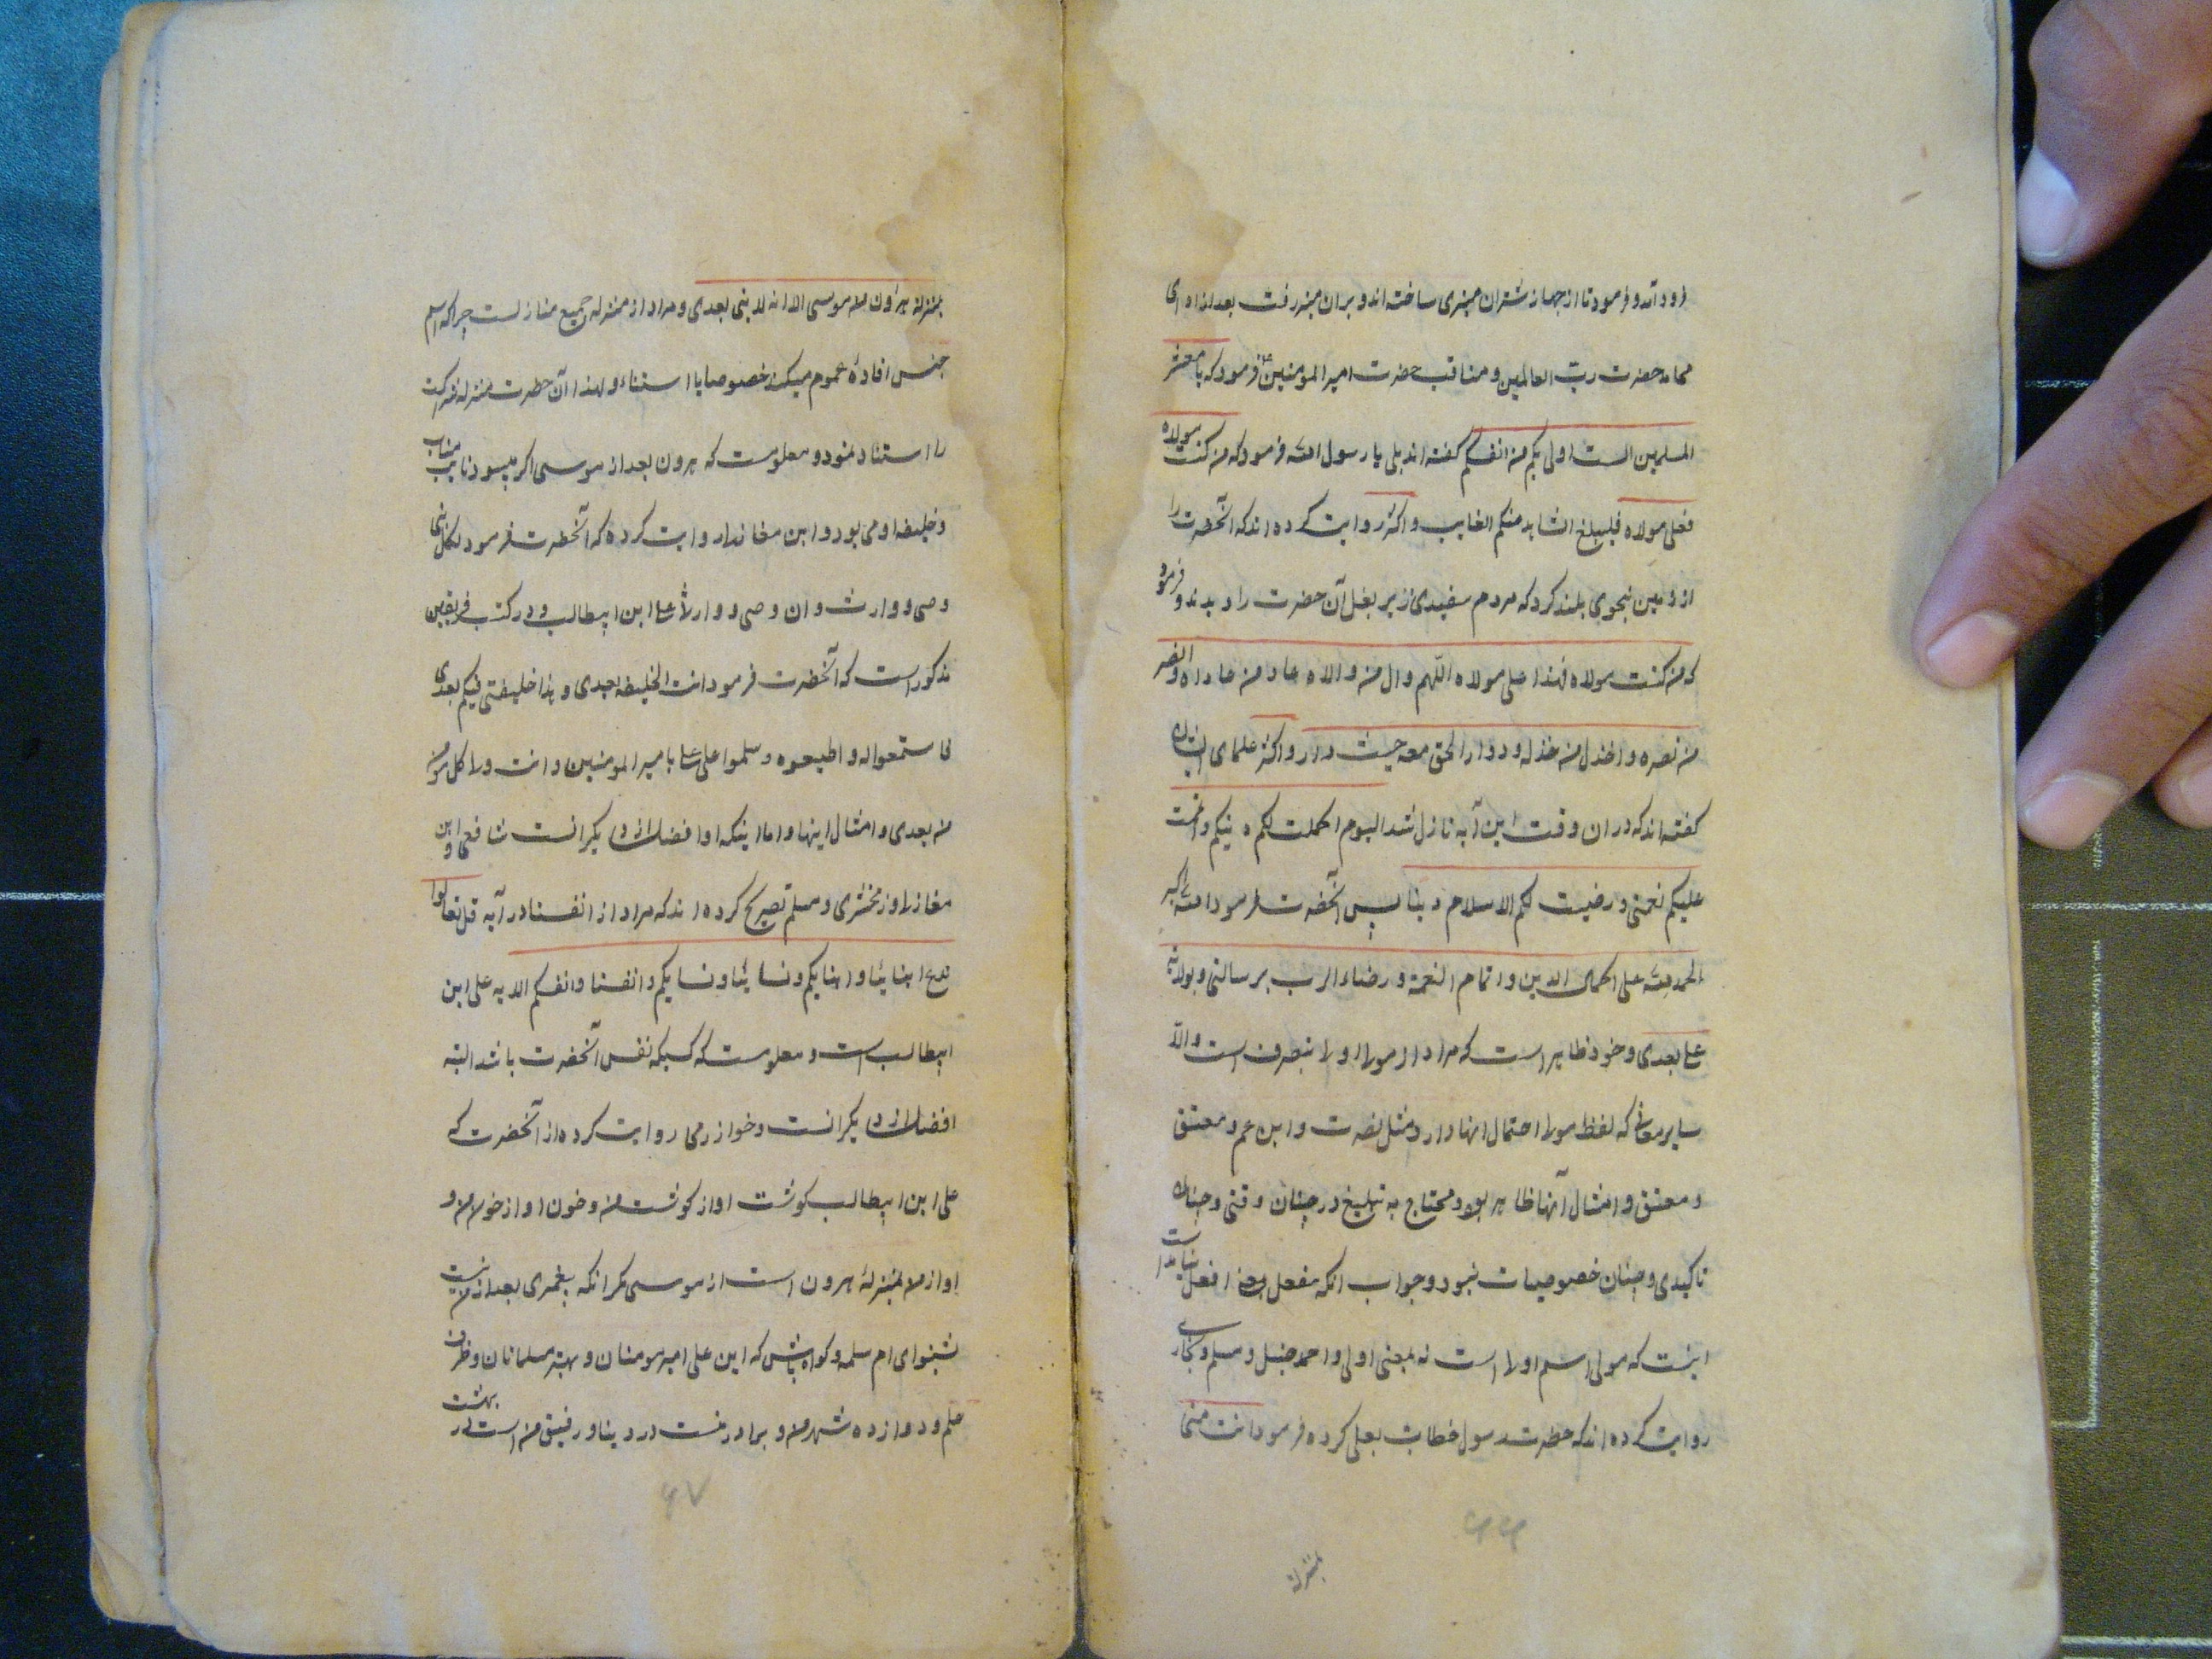 فرود آمد و فرمود تا از جهاز شتران منبری ساخته اند و بران منبر رفت بعد از ادای
محامد حضرت رب العالمین و مناقب حضرت امیر المؤمنین فرمود که یا معشر
المسلمین الست اولی بکم من انفسکم گفته اند بلی یا رسول الله فرمود که من کنت مولاه
فعلی مولاه فلیبلغ الشاهد منکم الغایب و اکثر روایت کرده اند که آنحضرت را
از زمین بنحوی بلند کرد که مردم سفیدی زیر بغل آن حضرت را دیدند و فرمود
که من کنت مولاه فهذا علی مولاه اللهم وال من والاه عاد من عاداه و انصر
من نصره و اخذل من خذله و دوار الحق معه حیث دار و اکثر علمای ایشان
گفته اند که در ان وقت این آیه نازل شد الیوم اکملت لکم دینکم و اتممت
علیکم نعمتی و رضیت لکم الاسلام دینا پس آنحضرت فرمود الله اکبر
الحمد لله علی اکمال الدین و اتمام النعمة و رضاء الرب برسالتی و بولایة
علی بعدی و خود ظاهر است که مراد از مولا اولا بتصرف است و الا
سایر معانی که لفظ مولا احتمال انها دارد مثل نصرت و ابن عم و معتق
و معتق و امثال آنها ظاهر بود و محتاج به تبلیغ در چنان وقتی و چنان
تاکیدی و چنان خصوصیات نبود و جواب انکه مفعل بمعنی افعل نیامده است
اینست که مولی اسم اولا است نه بمعنی اولی و احمد حنبل و مسلم و بخاری
روایت کرده اند که حضرت رسول خطاب بعلی کرده فرمود انت منی
۶۶
بمنزلة
بمنزلة هرون من موسی الا انه لا نبی بعدی و مراد از منزله جمیع منازلست چرا که اسم
جنس افادهٔ عموم میکند خصوصا با استثناء و لهذا آن حضرت منزله شراکت
را استثناء نمود و معلومست که هرون بعد از موسی اگر میبود نایب مناب
و خلیفه او می بود و ابن مغازلی روایت کرده که آنحضرت فرمود لکل نبی
وصی و وارث و ان وصی و وارثی علی ابن ابیطالب و در کتب فریقین
مذکور است که آنحضرت فرمود انت الخلیفه بعدی و هذا خلیفتی فیکم بعدی
فاستمعوا له و اطیعوه و سلموا علی علی بامیر المومنین و انت ولی کل مؤمن
من بعدی و امثال اینها و اما اینکه او افضل از دیگرانست شافعی و ابن
مغازلی و زمخشری و مسلم تصریح کرده اند که مراد از انفسنا در آیه قل تعالوا
ندع ابنائنا و ابنایکم و نسائنا و نسایکم و انفسنا و انفسکم الایه علی ابن
ابیطالب است و معلومست که کسیکه نفس آنحضرت باشد البته
افضل از دیگرانست و خوارزمی روایت کرده از آنحضرت که
علی ابن ابیطالب گوشت او از گوشت من و خون او از خون من و
او از من بمنزلهٔ هرون است از موسی مگر انکه پیغمبری بعد از من نیست
بشنو ای ام سلمه و گواه باش که این علی امیر مومنان و بهتر مسلمانان و ظرف
علم و دروازه شهر من و برادر منست در دینا و رفیق من است در بهشت
۶۷